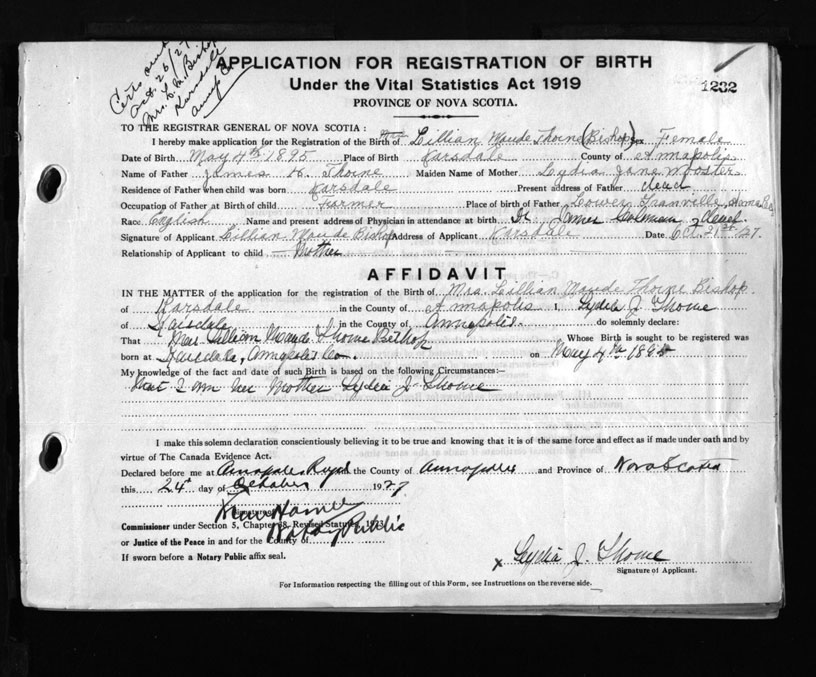 Certs and
Oct. 26/27
Mrs. L. M. Bishop
Karsdale
Annap Co
APPLICATION FOR REGISTRATION OF BIRTH
Under the Vital Statistics Act 1919
1232
PROVINCE OF NOVA SCOTIA.
TO THE REGISTRAR GENERAL OF NOVA SCOTIA:
I hereby make application for the Registration of the Birth of Lillian Maude Thorne (Bishop) Sex Female
Date of Birth May 4th 1895 Place of Birth Karsdale County of Annapolis
Name of Father James H. Thorne Maiden Name of Mother Lydia Jane Wooster
Residence of Father when child was born Karsdale Present address of Father dead
Occupation of Father at Birth of child Farmer Place of birth of Father Lower Granville,
Race English Name and present address of Physician in attendance at birth Dr. Coleman
Signature of Applicant Lillian Maude Bishop Address of Applicant Karsdale Date Oct. 21st/27.
Relationship of Applicant to child Mother
AFFIDAVIT
IN THE MATTER of the application for the registration of the Birth of Mrs. Lillian Maude Thorne Bishop.
of Karsdale in the County of Annapolis I, Lydia J. Thorne
of Karsdale in the County of Annapolis. do solemnly declare:
That Mrs Lillian Maude Thorne Bishop Whose Birth is sought to be registered was
born at Karsdale, Annapolis Co. on May 4th 1895
My knowledge of the fact and date of such Birth is based on the following Circumstances:—
that I am her Mother Lydia J. Thorne
I make this solemn declaration conscientiously believing it to be true and knowing that it is of the same force and effect as if made under oath and by
virtue of The Canada Evidence Act.
Declared before me at Annapolis Royal in the County of Annapolis and Province of Nova Scotia
this 24th day of October 1927
Commissioner under Section 5, Chapter 38, Revised Statutes, 1923
Notary Public
or Justice of the Peace in and for the County of
If sworn before a Notary Public affix seal.
x Lydia J. Thorne
Signature of Applicant.
For Information respecting the filling out of this Form, see Instructions on the reverse side.